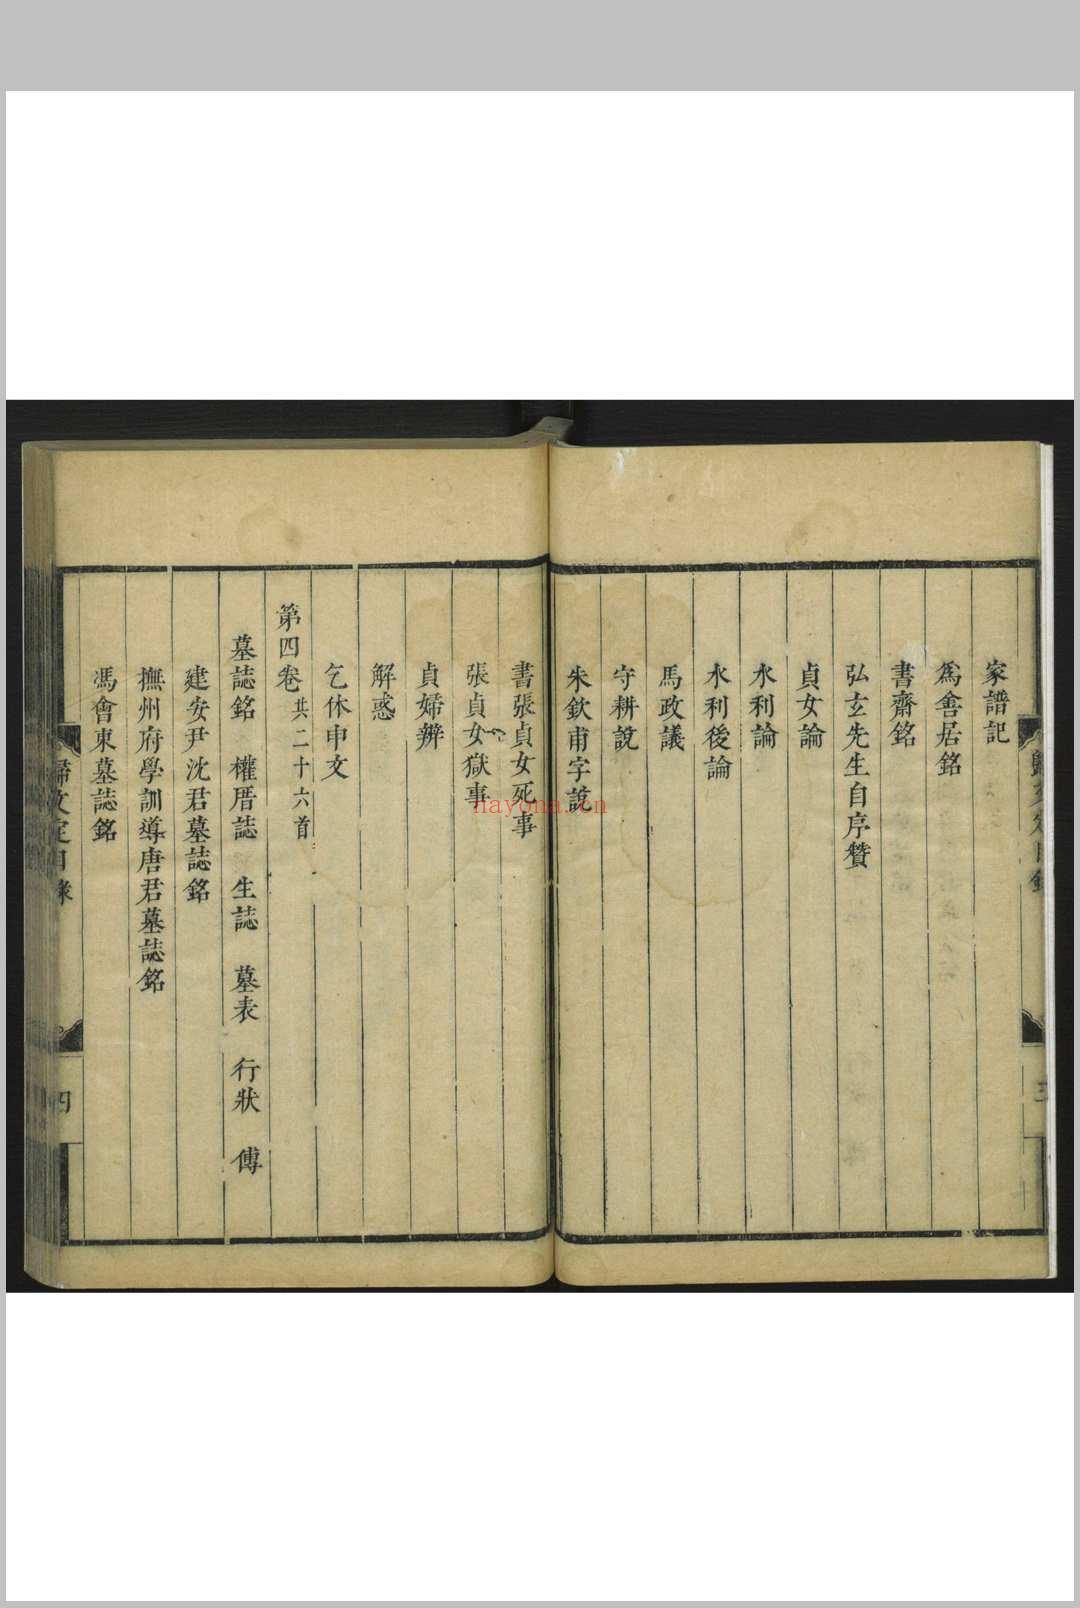 家譜記
爲善居銘
書齋銘
弘玄先生自序贊
貞女論
水利論
水利後論
馬政議
守耕說
朱欽甫字說
書張貞女死事
張貞女獄事
貞婦辨
解惑
乞休申文
第四卷 共二十六首
墓誌銘 權厝誌 生誌 墓表 行狀 傳
建安尹沈君墓誌銘
撫州府學訓導唐君墓誌銘
馮會東墓誌銘
歸文定目錄
四
nayona.cn